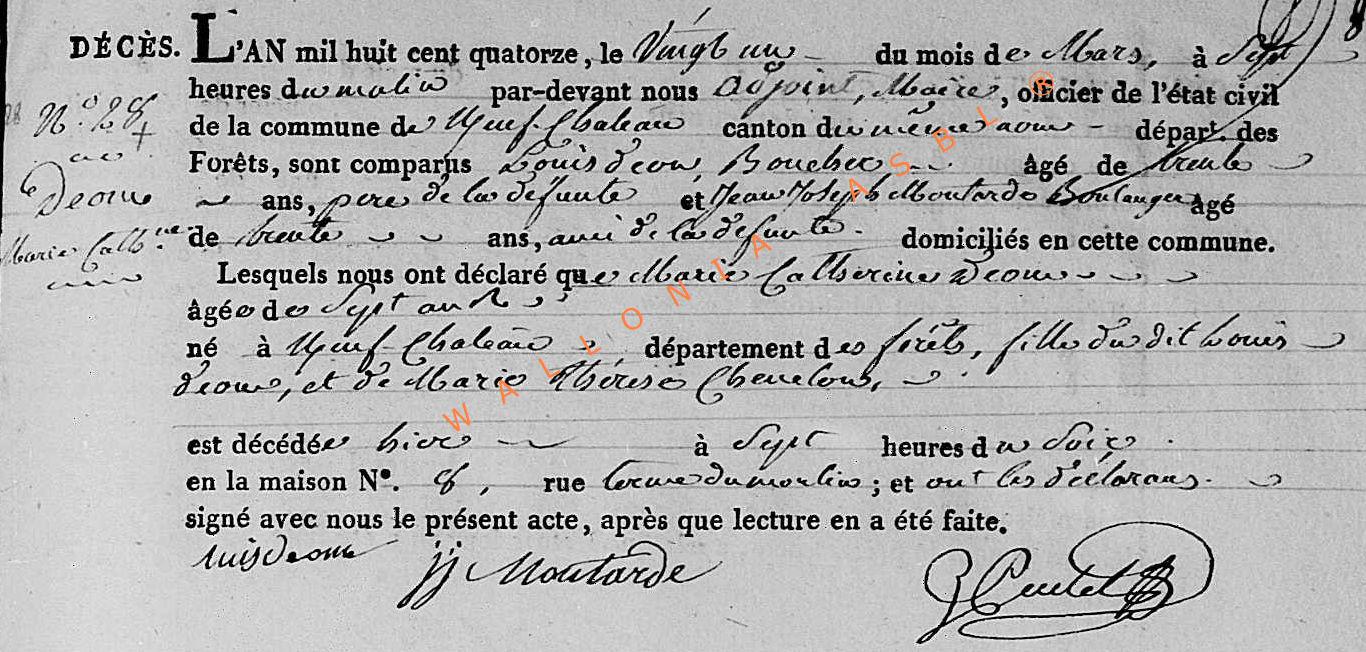 DÉCÈS. L'AN mil huit cent quatorze, le Vingt un du mois de Mars, à Sept
heures du matin par-devant nous adjoint, Maire, officier de l'état civil
N.° 28
de la commune de Neuf Chateau canton du même nom départ. des
Forêts, sont comparus Louis deom, Boucher âgé de trente
Deom
ans, pere de la défunte et Jean Joseph Moutarde Boulanger âgé
Marie Cath.ne
de trente ans, ami de la défunte. domiciliés en cette commune.
Lesquels nous ont déclaré que Marie Catherine Deom
âgée de Sept ans
né à Neuf Chateau département des forêts, fille du dit Louis
deom, et de Marie Thérese
est décédée hier à Sept heures du Soir
en la maison N°. 8, rue du moulin; et ont les déclarans.
signé avec nous le présent acte, après que lecture en a été faite.
jj Moutarde
WALLONIA ASBL ®